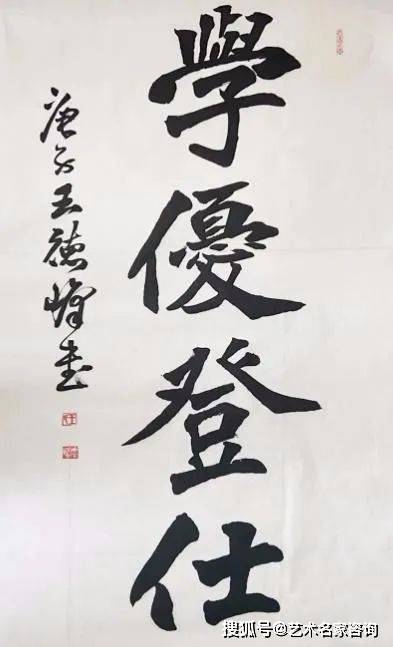 學優登仕
庚子王德峰書
搜狐号@艺术名家咨询